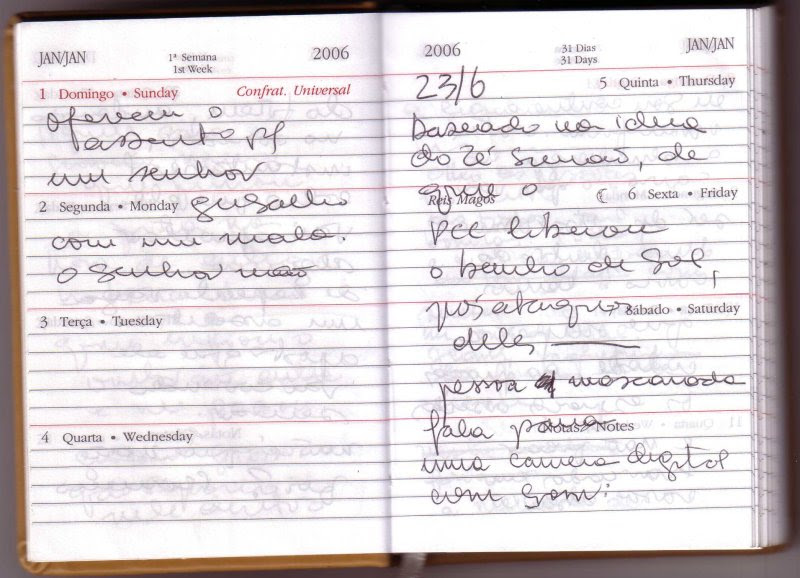 JAN/JAN
1ª Semana
1st Week
2006
1 Domingo • Sunday
Confrat. Universal
oferecem o
assento pf
um senhor
2 Segunda • Monday
grisalho
com um mala.
o senhor não
3 Terça • Tuesday
4 Quarta • Wednesday
2006
31 Dias
31 Days
JAN/JAN
23/6
5 Quinta • Thursday
Baseado na ideia
do Zé Simão, de
que o
Reis Magos
6 Sexta • Friday
PCC liberou
o banho de sol,
pós ataques
Sábado • Saturday
deles
pessoa mascarada
fala para
Notas • Notes
uma camera digital
com som: